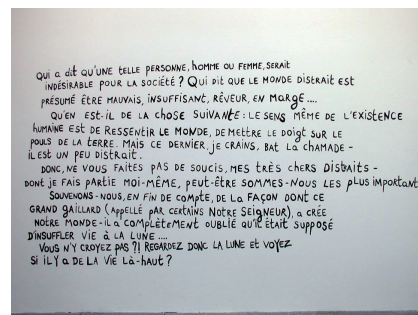 Qui a dit qu'une telle personne, homme ou femme, serait
indésirable pour la société ? Qui dit que le monde distrait est
présumé être mauvais, insuffisant, rêveur, en marge ....
Qu'en est-il de la chose suivante : le sens même de l'existence
humaine est de ressentir le monde, de mettre le doigt sur le
pouls de la terre. Mais ce dernier, je crains, bat la chamade -
il est un peu distrait.
Donc, ne vous faites pas de soucis, mes très chers distraits -
dont je fais partie moi-même, peut-être sommes-nous les plus important
Souvenons-nous, en fin de compte, de la façon dont ce
grand gaillard (appellé par certains Notre Seigneur), a créé
notre monde - il a complètement oublié qu'il était supposé
d'insuffler vie à la lune ....
Vous n'y croyez pas ?! Regardez donc la lune et voyez
si il y a de la vie là-haut ?